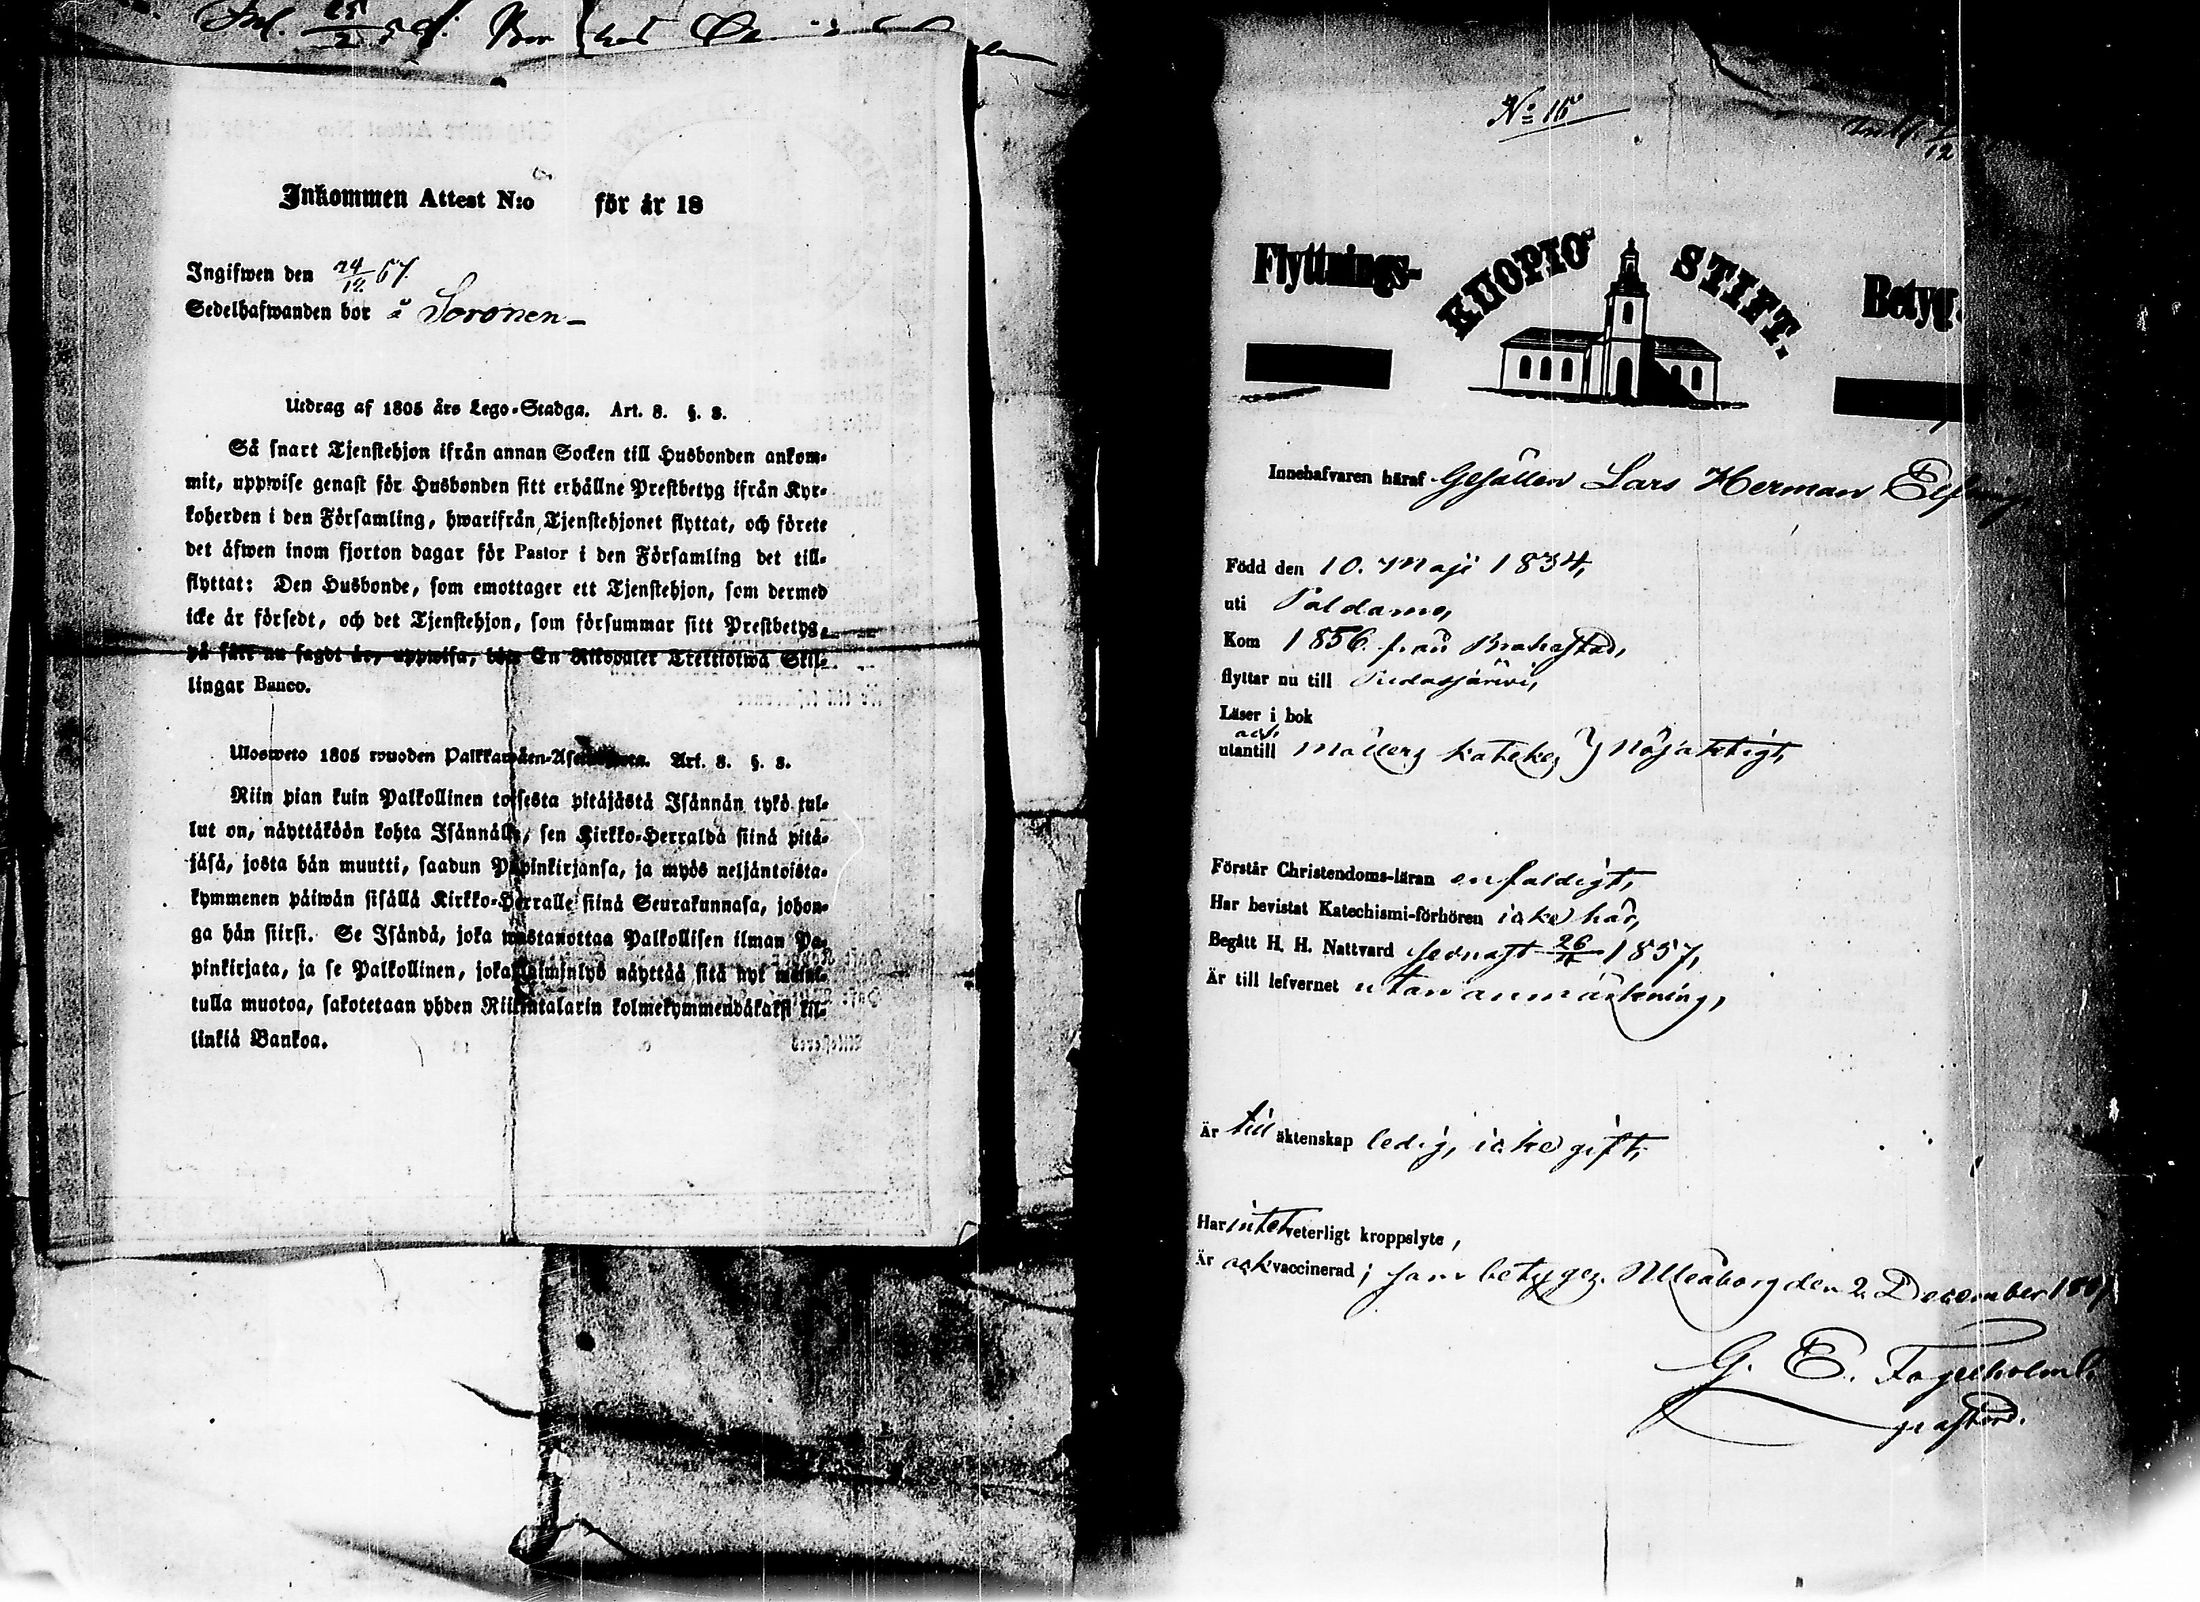 Inl. 25/2
Inkommen Attest N:o för år 18
Ingifwen den 24/12 57.
Sedelhafwanden bor å Soronen
Utdrag af 1805 års Lego-Stadga. Art. 8. §. 8.
Så snart Tjenstehjon ifrån annan Socken till Husbonden ankom-
mit, uppwise genast för Husbonden sitt erhållne Prestbetyg ifrån Kyr-
koherden i den Församling, hwarifrån Tjenstehjonet flyttat, och förete
det äfwen inom fjorton dagar för Pastor i den Församling det till-
flyttat: Den Husbonde, som emottager ett Tjenstehjon, som dermed
icke är försedt, och det Tjenstehjon, som försummar sitt Prestbetyg,
på sätt nu sagdt är, uppwisa, böte En Riksdaler Trettiotwå Skil-
lingar Banco.
Ulosweto 1805 wuoden Palkkawäen-Asetuksesta. Art. 8. §. 8.
Niin pian kuin Palkollinen toisesta pitäjästä Isännän tykö tul-
lut on, näyttäköön kohta Isännälle, sen Kirkko-Herralda siinä pitä-
jäsä, josta hän muutti, saadun Papinkirjansa, ja myös neljäntoista-
kymmenen päiwän sisällä Kirkko-Herralle siinä Seurakunnasa, johon-
ga hän siirsi. Se Isändä, joka wastanottaa Palkollisen ilman Pa-
pinkirjata, ja se Palkollinen, joka laiminlyö näyttää sitä nyt mainit-
tulla muotoa, sakotetaan yhden Riikintalarin kolmekymmendäkaksi kil-
linkiä Bankoa.
N:o 15
Flyttnings- KUOPIO STIFT. Betyg.
Innehafvaren häraf Gesällen Lars Herman
Född den 10. Maji 1834,
uti Paldamo,
Kom 1856 från Brahestad,
flyttar nu till Pudasjärvi,
Läser i bok
och
utantill Möllers Kateches } nöjaktigt,
Förstår Christendoms-läran enfaldigt,
Har bevistat Katechismi-förhören icke här,
Begått H. H. Nattvard sednast 26/11 1857,
Är till lefvernet utan anmärkning,
Är till äktenskap ledig, icke gift,
Har intet veterligt kroppslyte,
Är ock vaccinerad; som betygez. Uleåborg den 2. December 1857
G. E. Fogelholm